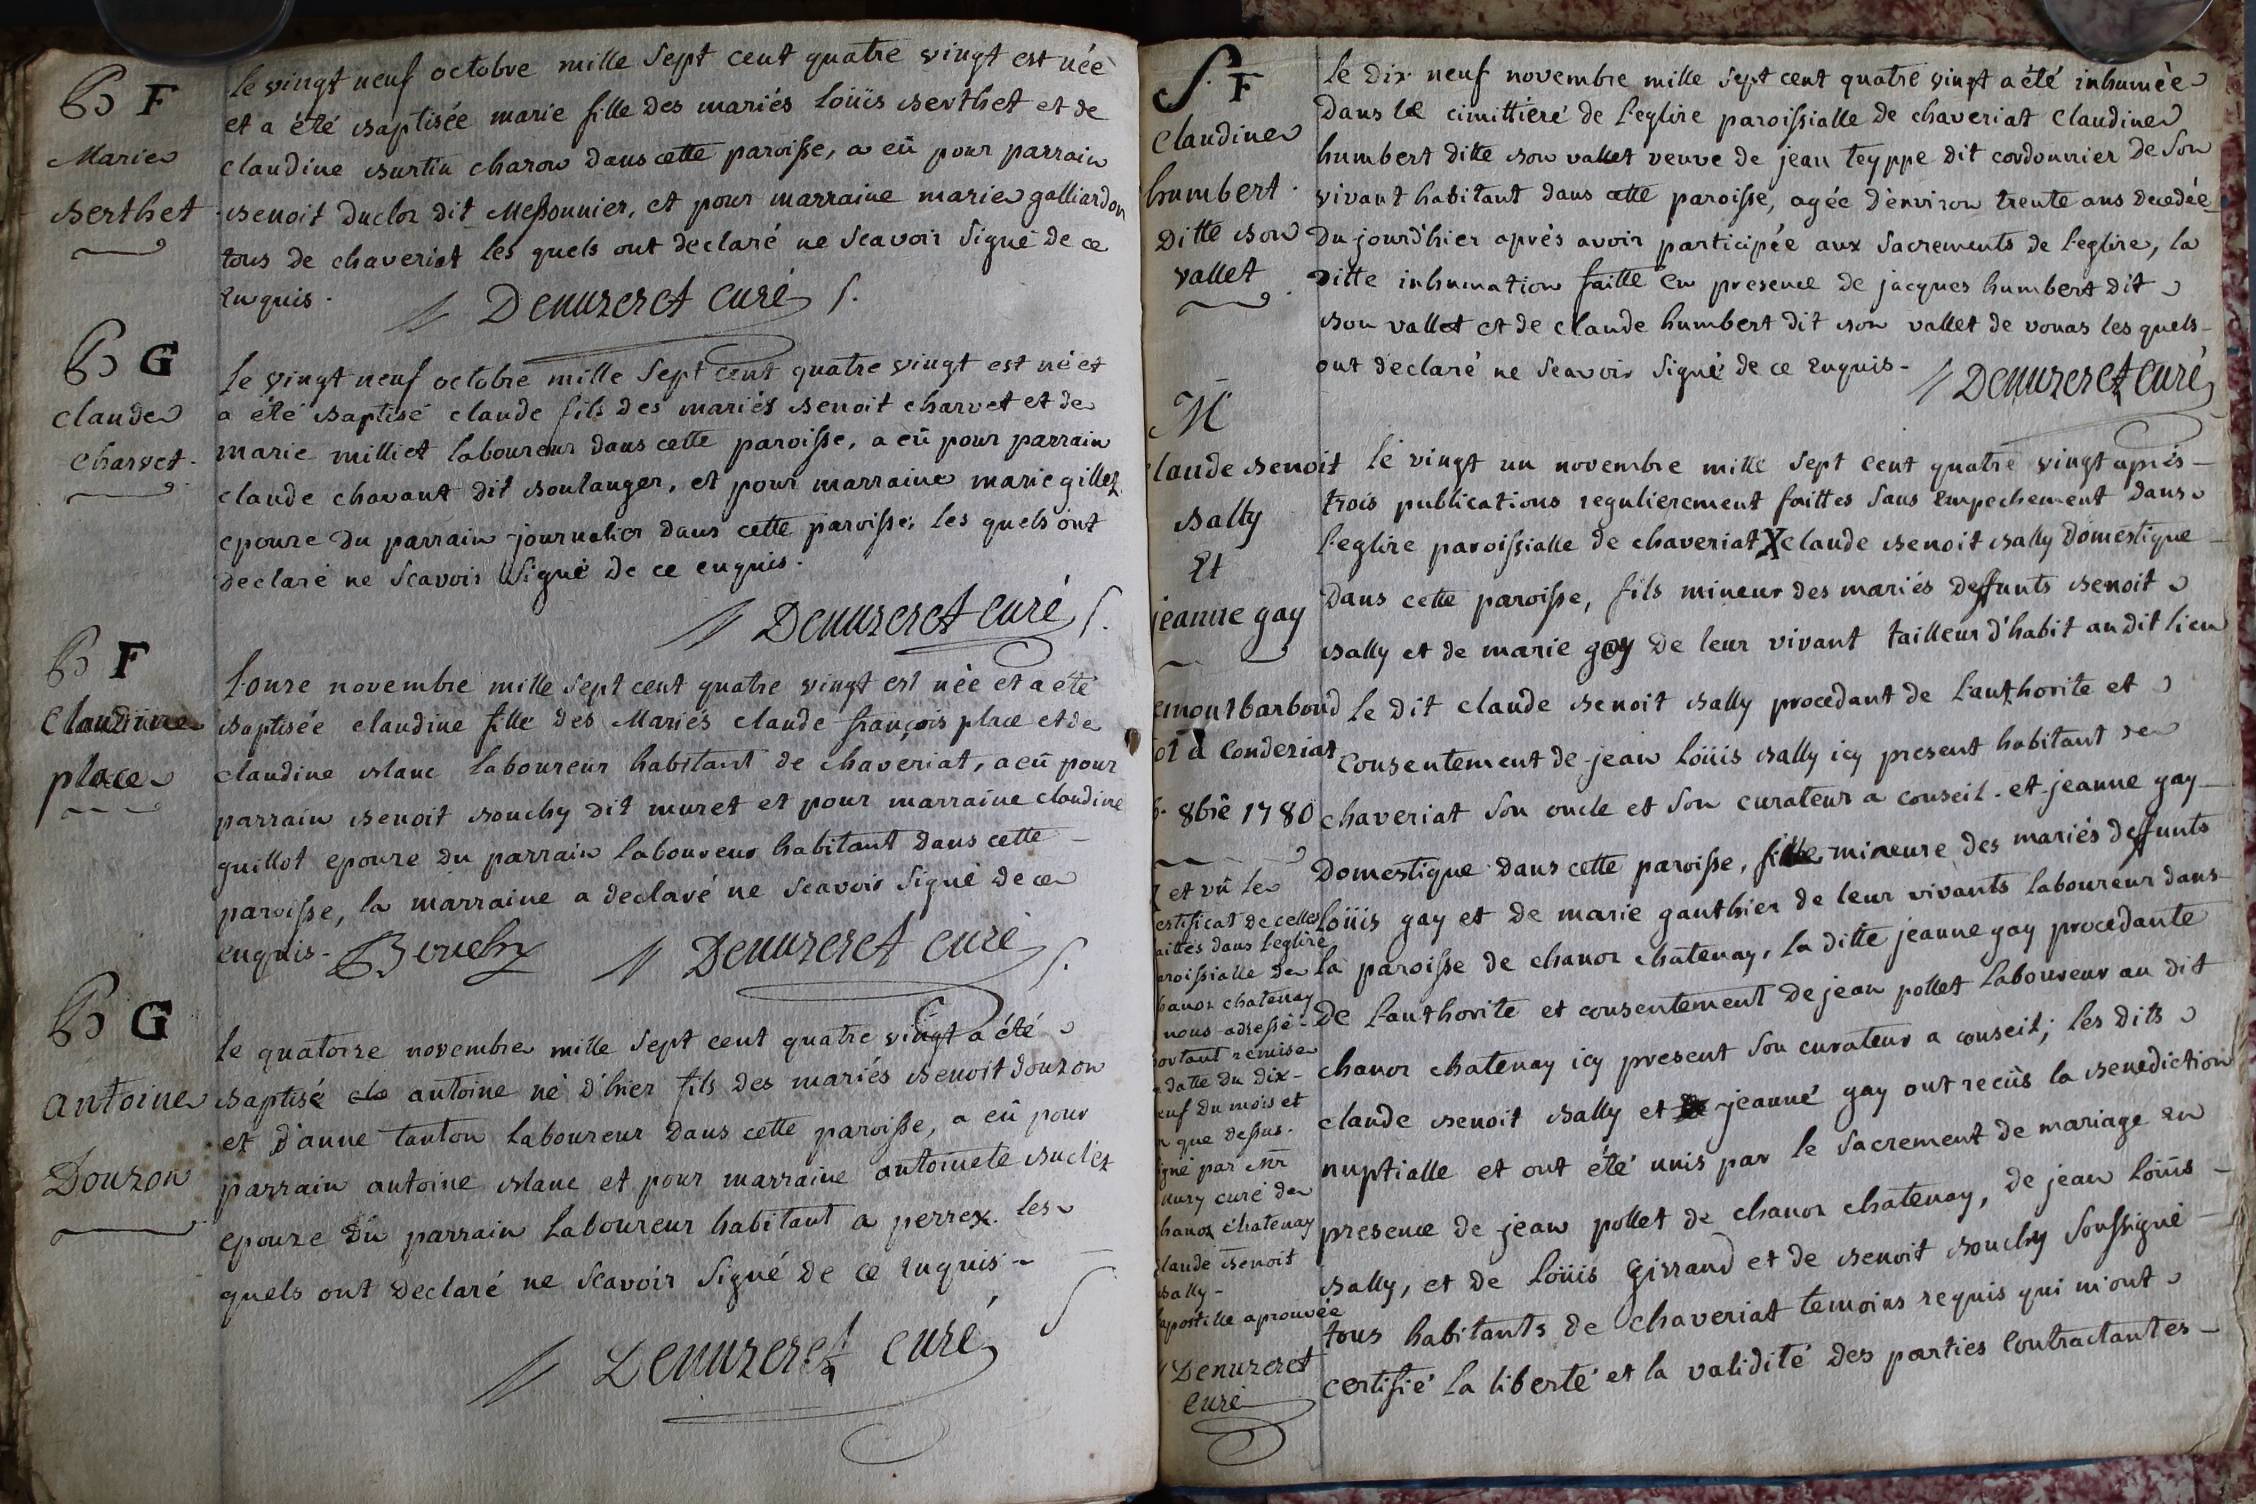 B F
Marie
Berthet
le vingt neuf octobre mille sept cent quatre vingt est née
et a été baptisée marie fille des mariés loüis berthet et de
claudine burtin charon dans cette paroisse, a eû pour parrain
benoit duclos dit Messonnier, et pour marraine marie galliardon
tous de chaveriat les quels ont declaré ne scavoir signé de ce
enquis.
Denuzeret curé
B G
claude
charvet
le vingt neuf octobre mille sept cent quatre vingt est né et
a été baptisé claude fils des mariés benoit charvet et de
marie milliet laboureur dans cette paroisse, a eû pour parrain
claude chavant dit boulanger, et pour marraine marie gillet
epouze du parrain journalier dans cette paroisse, les quels ont
declaré ne scavoir signé de ce enquis.
Denuzeret curé
B F
Claudine
place
l'onze novembre mille sept cent quatre vingt est née et a été
baptisée claudine fille des Mariés claude françois place et de
claudine blanc laboureur habitant de chaveriat, a eû pour
parrain benoit bouchy dit muret et pour marraine claudine
guillot epouze du parrain laboureur habitant dans cette
paroisse, la marraine a declaré ne scavoir signé de ce
enquis. Bouchy Denuzeret curé
B G
antoine
Douzon
le quatorze novembre mille sept cent quatre vingt a été
baptisé antoine né d'hier fils des mariés benoit douzon
et d'anne tanton laboureur dans cette paroisse, a eû pour
parrain antoine blanc et pour marraine antoinete buclet
epouze du parrain laboureur habitant a perrex. les
quels ont declaré ne scavoir signé de ce enquis
Denuzeret curé
S. F
Claudine
humbert
ditte bon
vallet
le dix neuf novembre mille sept cent quatre vingt a été inhumée
dans le cimittiéré de l'eglize paroissialle de chaveriat claudine
humbert ditte bon vallet veuve de jean teyppe dit cordonnier de son
vivant habitant dans cette paroisse, agée d'environ trente ans decedée
du jourd'hier aprés avoir participée aux sacrements de l'eglize, la
ditte inhumation faitte en presence de jacques humbert dit
bon vallet et de claude humbert dit bon vallet de vonas les quels
ont declaré ne scavoir signé de ce enquis. Denuzeret curé
M
claude benoit
bally
Et
jeanne gay
le vingt un novembre mille sept cent quatre vingt aprés
trois publications regulierement faittes sans empechement dans
l'eglize paroissialle de chaveriat X claude benoit bally domestique
dans cette paroisse, fils mineur des mariés deffunts benoit
bally et de marie gay de leur vivant tailleur d'habit au dit lieu
le dit claude benoit bally procedant de l'authorite et
consentement de jean loüis bally icy present habitant de
chaveriat son oncle et son curateur a conseil. et jeanne gay
domestique dans cette paroisse, fille mineure des mariés deffunts
loüis gay et de marie gauthier de leur vivants laboureur dans
la paroisse de chanoz chatenay, la ditte jeanne gay procedante
de l'authorite et consentement de jean pollet laboureur au dit
chanoz chatenay icy present son curateur a conseil; les dits
claude benoit bally et jeanne gay ont reciis la benediction
nuptialle et ont été unis par le sacrement de mariage en
presence de jean pollet de chanoz chatenay, de jean loüis
bally, et de loüis girraud et de benoit bouchy soussigné
tous habitants de chaveriat temoins requis qui m'ont
certifié la liberté et la validité des parties contractantes
emontbarboud
ot a Conderiat
8bre 1780
X et vû le
certificat de celles
faittes dans l'eglize
paroissialle de
chanoz chatenay
a nous adressé
portant remise
en datte du dix
neuf du mois et
an que dessus.
signé par Mr
curé de
chanoz chatenay
claude benoit
bally
apostille aprouvée
Denuzeret
curé